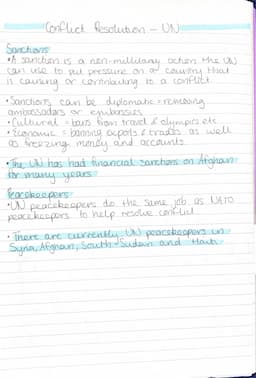 Conflict Resolution - UN
Sanctions
• A sanction is a non-military action the UN
can use to put pressure on a country that
is causing or contributing to a conflict.
• Sanctions can be diplomatic = removing
ambassadors or embassies
• Cultural = bans from travel & olympics etc
• Economic = banning exports & trades as well
as freezing money and accounts
• The UN has had financial sanctions on Afghan
for many years.
Peacekeepers
• UN peacekeepers do the same job as NATO
peacekeepers to help resolve conflict
• There are currently UN peacekeepers in
Syria, Afghan, South Sudan and Haiti.